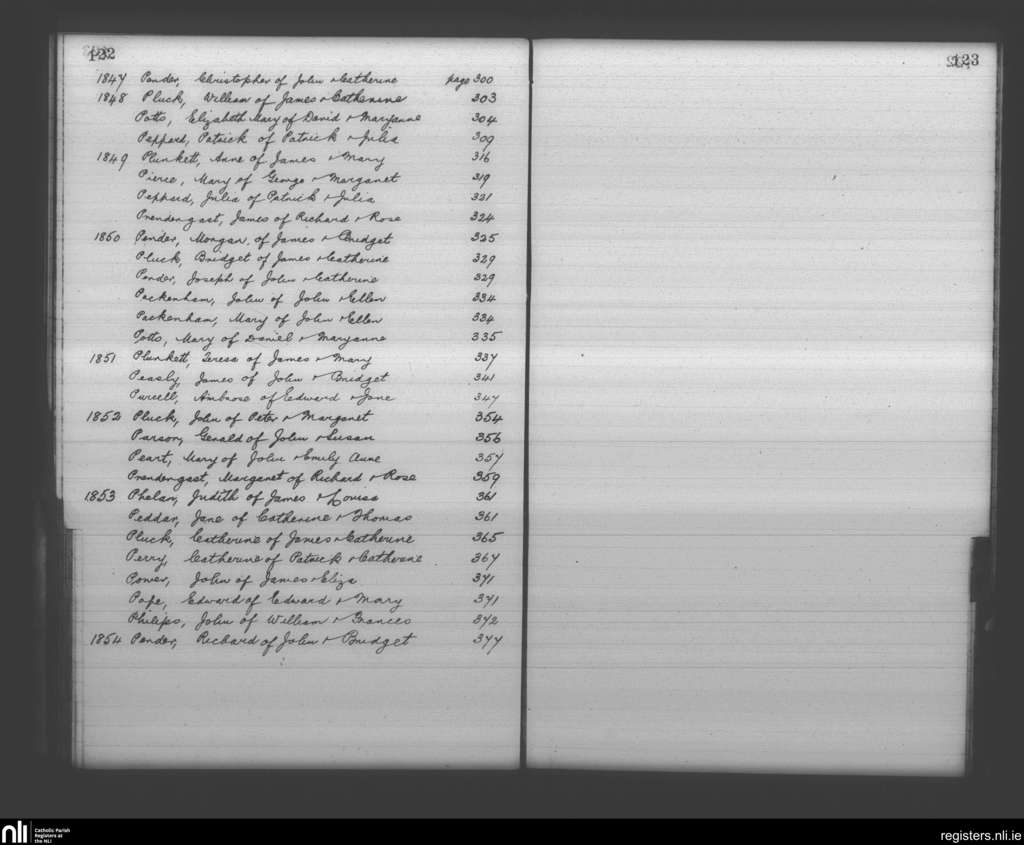 122
123
1847 Pender, Christopher of John & Catherine page 300
1848 Pluck, William of James & Catherine 303
Potts, Elizabeth Mary of David & Maryanne 304
Peppard, Patrick of Patrick & Julia 309
1849 Plunkett, Anne of James & Mary 316
Pierce, Mary of George & Margaret 319
Peppard, Julia of Patrick & Julia 321
Prendergast, James of Richard & Rose 324
1850 Pender, Morgan of James & Bridget 325
Pluck, Bridget of James & Catherine 329
Pender, Joseph of John & Catherine 329
Packenham, John of John & Ellen 334
Packenham, Mary of John & Ellen 334
Potts, Mary of Daniel & Maryanne 335
1851 Plunkett, Teresa of James & Mary 337
Peasly, James of John & Bridget 341
Purcell, Ambrose of Edward & Jane 347
1852 Pluck, John of Peter & Margaret 354
Parson, Gerald of John & Susan 356
Peart, Mary of John & Emily Anne 357
Prendergast, Margaret of Richard & Rose 359
1853 Phelan, Judith of James & Louisa 361
Peddar, Jane of Catherine & Thomas 361
Pluck, Catherine of James & Catherine 365
Perry, Catherine of Patrick & Catherine 367
Power, John of James & Eliza 371
Pope, Edward of Edward & Mary 371
Philips, John of William & Frances 372
1854 Pender, Richard of John & Bridget 377
nli Catholic Parish
Registers at
the NLI
registers.nli.ie